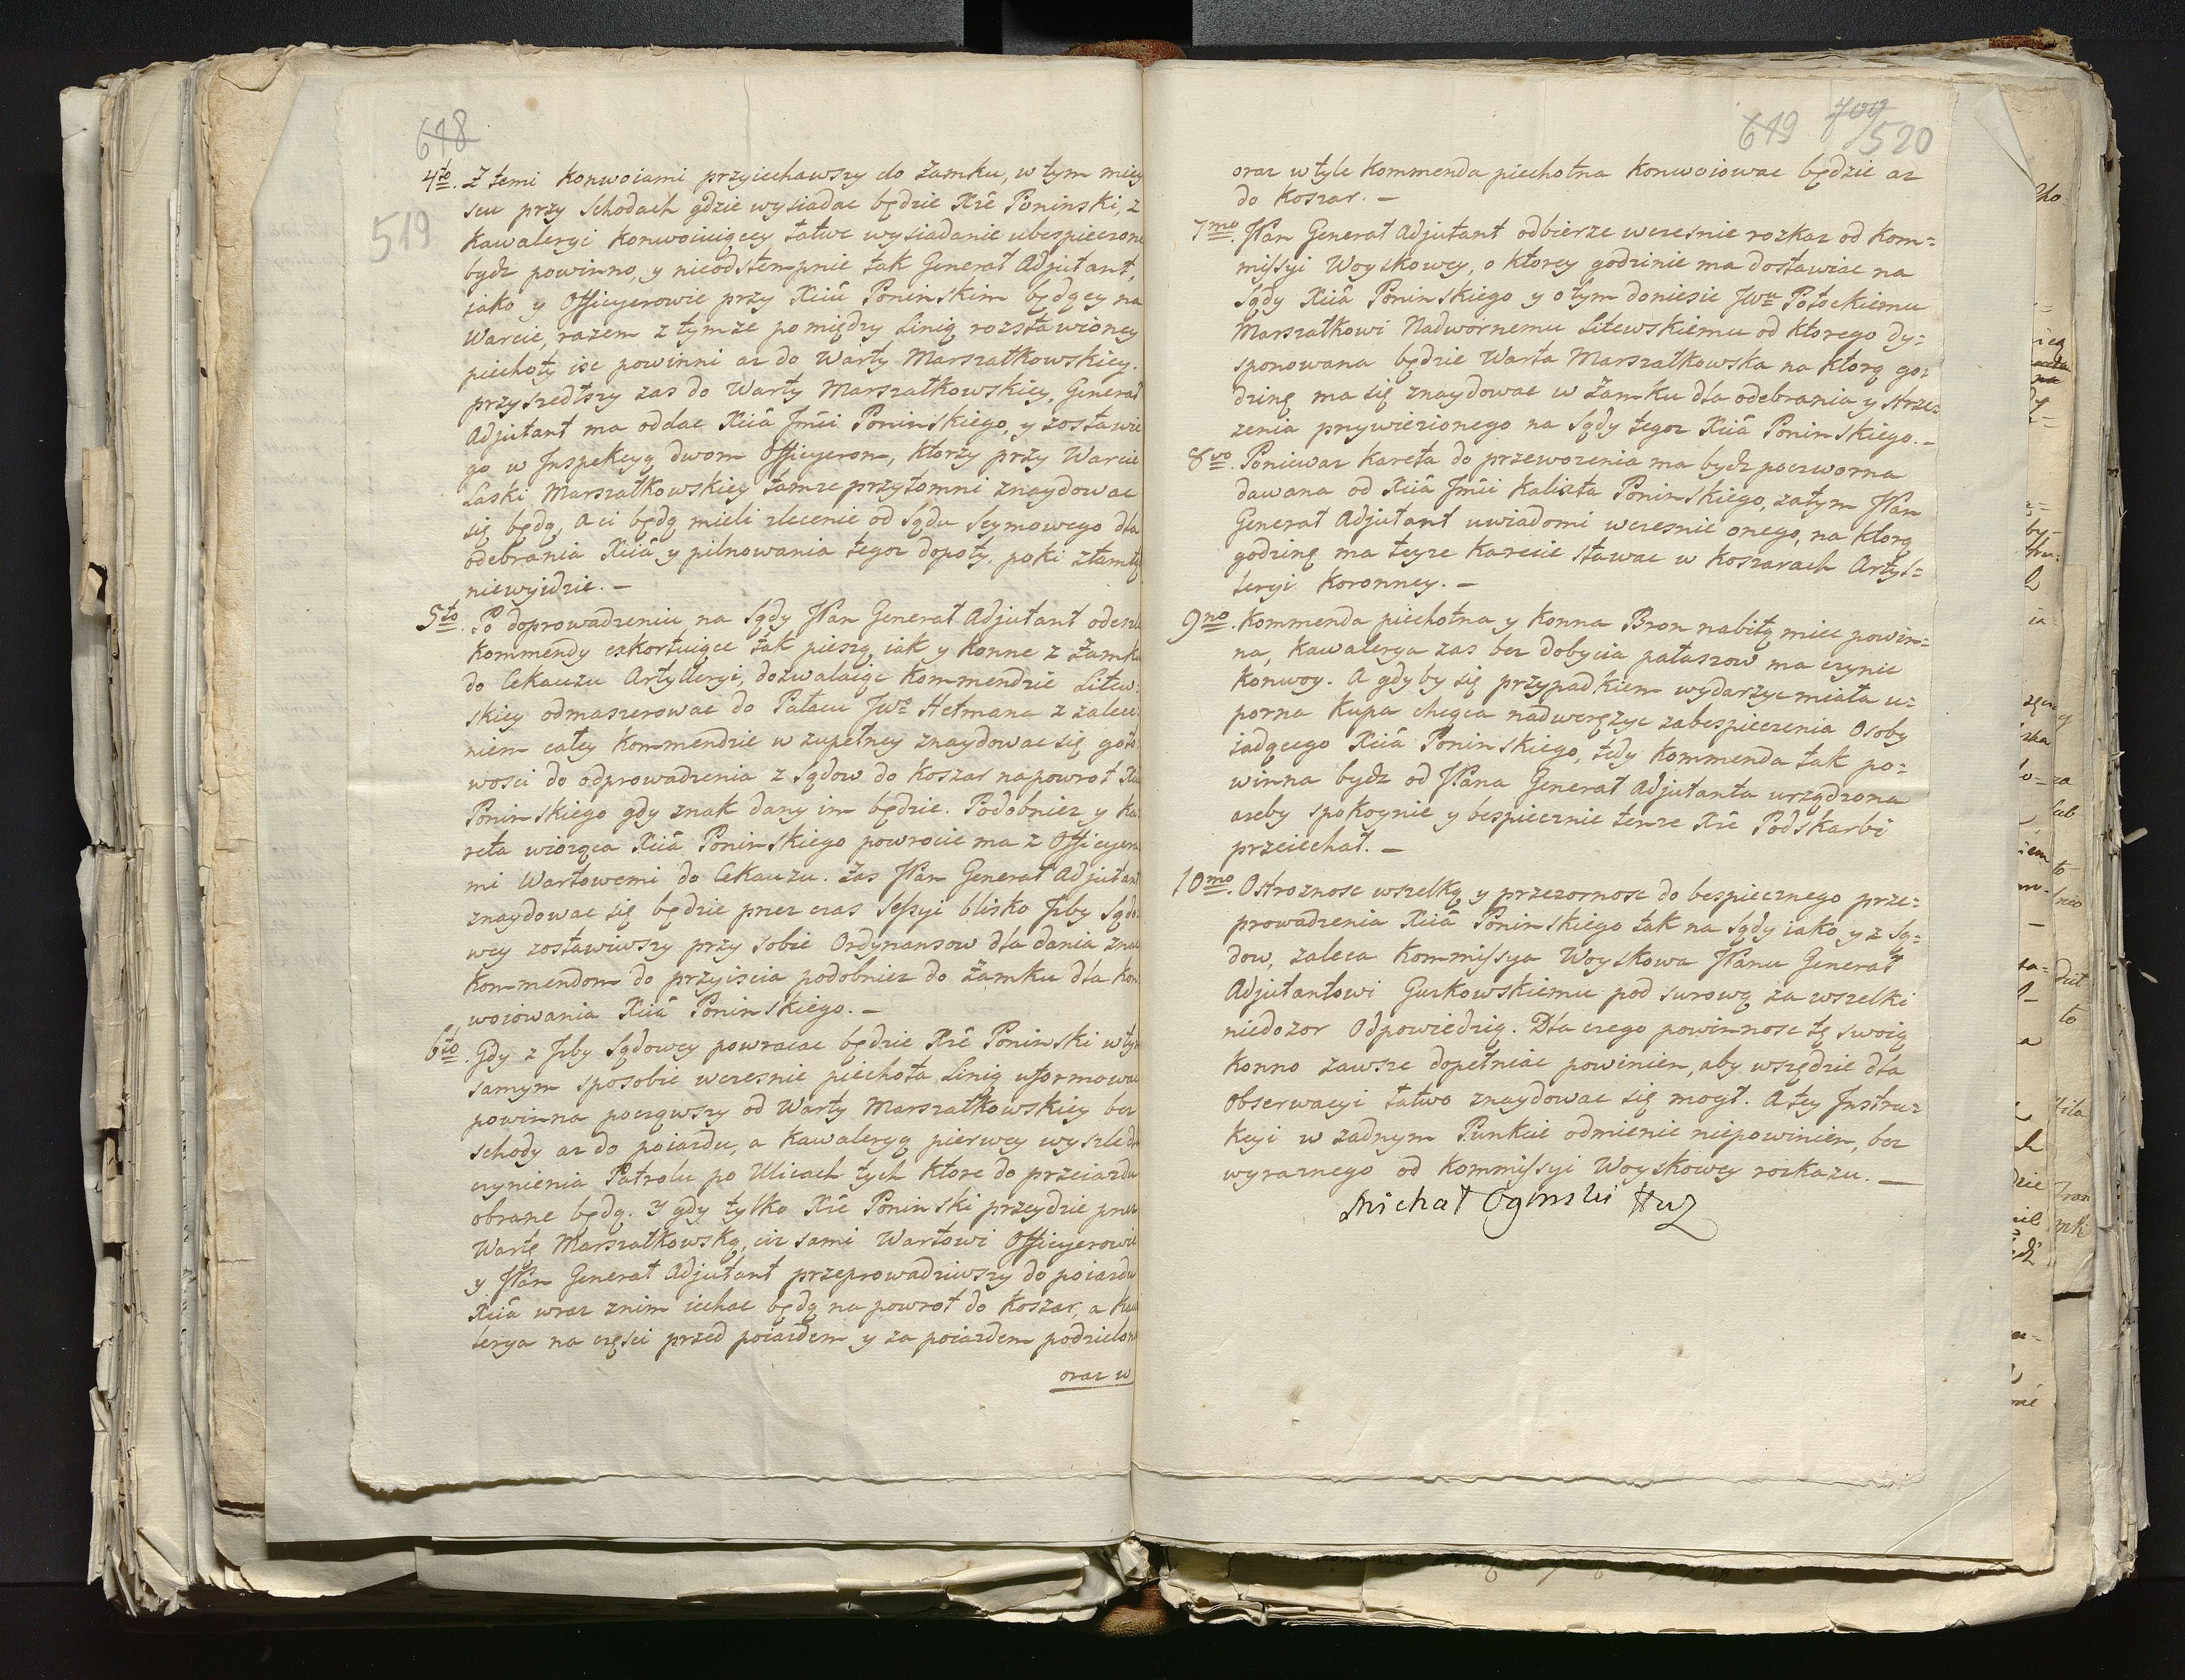 618
519
4to. Z temi Konwoiami przyiechawszy do Zamku, w tym miey
scu przy Schodach gdzie wysiadac będzie Xże Poninski, z
Kawaleryi Konwoiuiącey łatwe wysiadanie ubespieczone
bydz powinno, y nieodstempnie tak Generał Adjutant,
iako y Officyerowie przy Xciu Poninskim będący na
Warcie, razem z tymze pomiędzy Linią rozstawioney
piechoty isc powinni az do Warty Marszałkowskiey.
przyszedłszy zas do Warty Marszałkowskiey, Generał
Adjutant ma oddac Xcia Jmci Poninskiego, y zostawic
go w Jnspekcyą dwom Officyerom, ktorzy przy Warcie
Laski Marszałkowskiey tamze przytomni znaydowac
się będą, a ci będą mieli zlecenie od Sądu Seymowego dla
odebrania Xcia y pilnowania tegoz dopoty, poki ztamtą
niewyidzie. –
5to. Po doprowadzeniu na Sądy JPan Generał Adjutant odeszle
Kommendy exkortuiące tak pieszą, iak y Konne z Zamku
do Cekauzu Artylleryi, dozwalaiąc Kommendzie Litew=
skiey odmaszerowac do Pałacu JWo Hetmana z zalece=
niem całey Kommendzie w zupełney znaydowac się goto=
wosci do odprowadzenia z Sądow do Koszar napowrot Xcia
Poninskiego gdy znak dany im będzie. Podobniez y Ka=
reta wioząca Xcia Poninskiego powrocic ma z Officyera
mi Wartowemi do Cekauzu. Zas JPan Generał Adjutant
znaydowac się będzie przez czas Sessyi blisko Jzby Sądo=
wey zostawiwszy przy sobie Ordynansow dla dania znac
Kommendom do przyiscia podobniez do Zamku dla Kon
woiowania Xcia Poninskiego. –
6to. Gdy z Jzby Sądowey powracac będzie Xże Poninski w tym
samym sposobie wczesnie piechota Linią uformowac
powinna począwszy od Warty Marszałkowskiey bez
schody az do poiazdu, a Kawaleryą pierwey wyszle do
czynienia Patrolu po Ulicach tych ktore do przeiazdu
obrane będą. I gdy tylko Xże Poninski przeydzie przez
Wartę Marszałkowską, ciz sami Wartowi Officyerowie
y JPan Generał Adjutant przeprowadziwszy do poiazdu
Xcia wraz znim iechac będą na powrot do Koszar, a Kawa
lerya na częsci przed poiazdem y za poiazdem podzielona
oraz w
619 520
oraz w tyle Kommenda piechotna Konwoiowac będzie az
do Koszar. –
7mo. JPan Generał Adjutant odbierze wczesnie rozkaz od Kom=
missyi Woyskowey, o ktorey godzinie ma dostawiac na
Sądy Xcia Poninskiego y o tym doniesie JWu Potockiemu
Marszałkowi Nadwornemu Litewskiemu od ktorego dy=
sponowana będzie Warta Marszałkowska na ktorą go=
dzinę ma się znaydowac w Zamku dla odebrania y strze=
zenia przywiezionego na Sądy tegoz Xcia Poninskiego. –
8vo. Poniewaz Kareta do przewozenia ma bydz poczworna
dawana od Xcia Jmci Kalixta Poninskiego, zatym JPan
Generał Adjutant uwiadomi wczesnie onego, na ktorą
godzinę ma teyze Karecie stawac w Koszarach Artyl=
leryi Koronney. –
9no. Kommenda piechotna y Konna Bron nabitą miec powin=
na, Kawalerya zas bez dobycia pałaszow ma czynic
Konwoy. A gdyby się przypadkiem wydarzyc miała u=
porna Kupa chcąca nadwerężyc zabespieczenia Osoby
iadącego Xcia Poninskiego, tedy Kommenda tak po=
winna bydz od JPana Generał Adjutanta urządzona
azeby spokoynie y bespiecznie tenze Xże Podskarbi
przeiechał. –
10mo. Ostroznosc wszelką y przezornosc do bespiecznego prze=
prowadzenia Xcia Poninskiego tak na Sądy iako y z Są=
dow, zaleca Kommissya Woyskowa JPanu Generał
Adjutantowi Gurkowskiemu pod surową za wszelki
niedozor Odpowiedzią. Dla czego powinnosc tę swoią
Konno zawsze dopełniac powinien, aby wszędzie dla
Obserwacyi łatwo znaydowac się mogł. A tey Jnstru=
kcyi w zadnym Punkcie odmienic niepowinien, bez
wyraznego od Kommissyi Woyskowey rozkazu. –
Michał Oginski